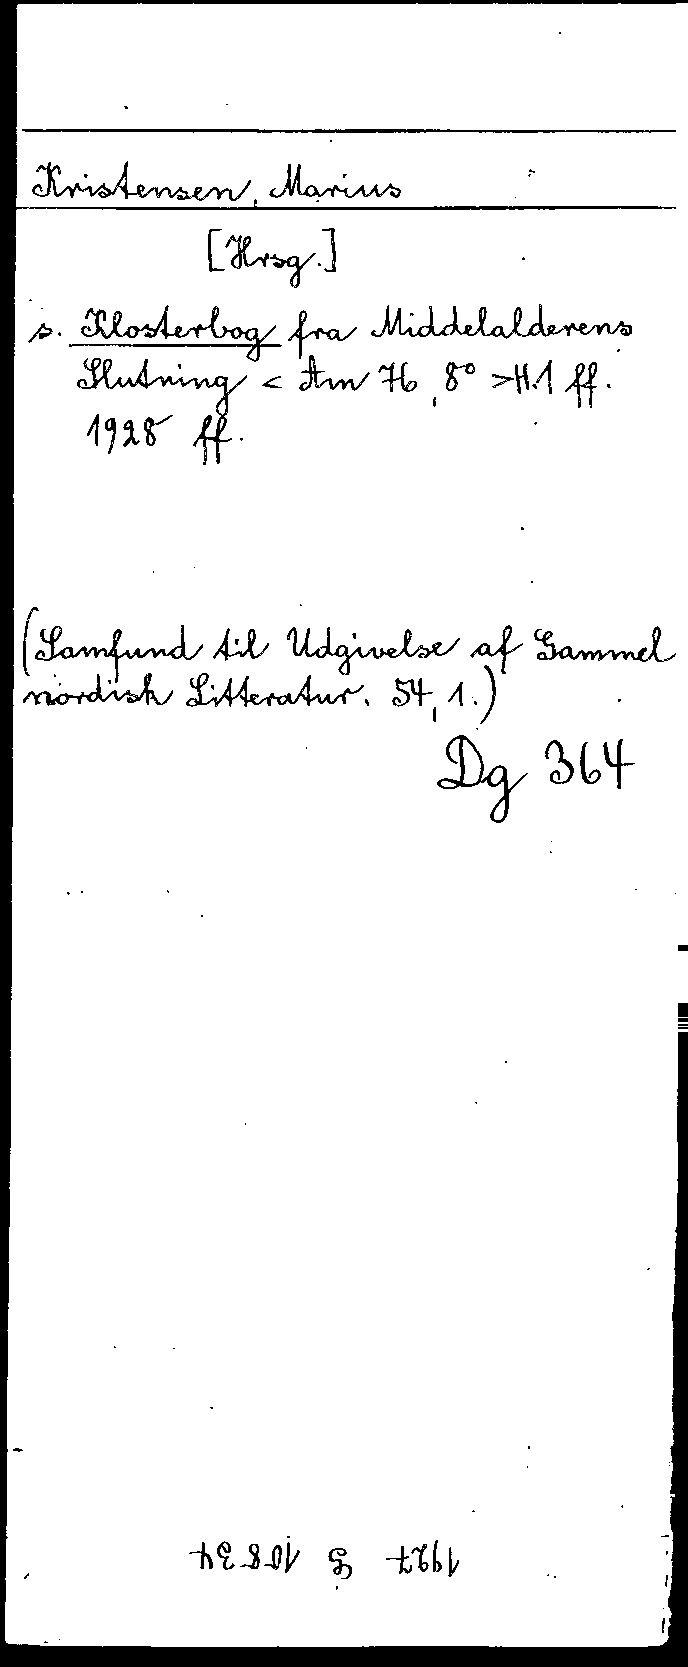 Kristensen, Marius
[Hrsg.]
s. Klosterbog fra Middelalderens
Slutning < Am 76, 8° > H.1 ff.
1928 ff.
(Samfund til Udgivelse af Gammel
nordisk Litteratur. 54, 1.)
Dg 364
1927 G 10834